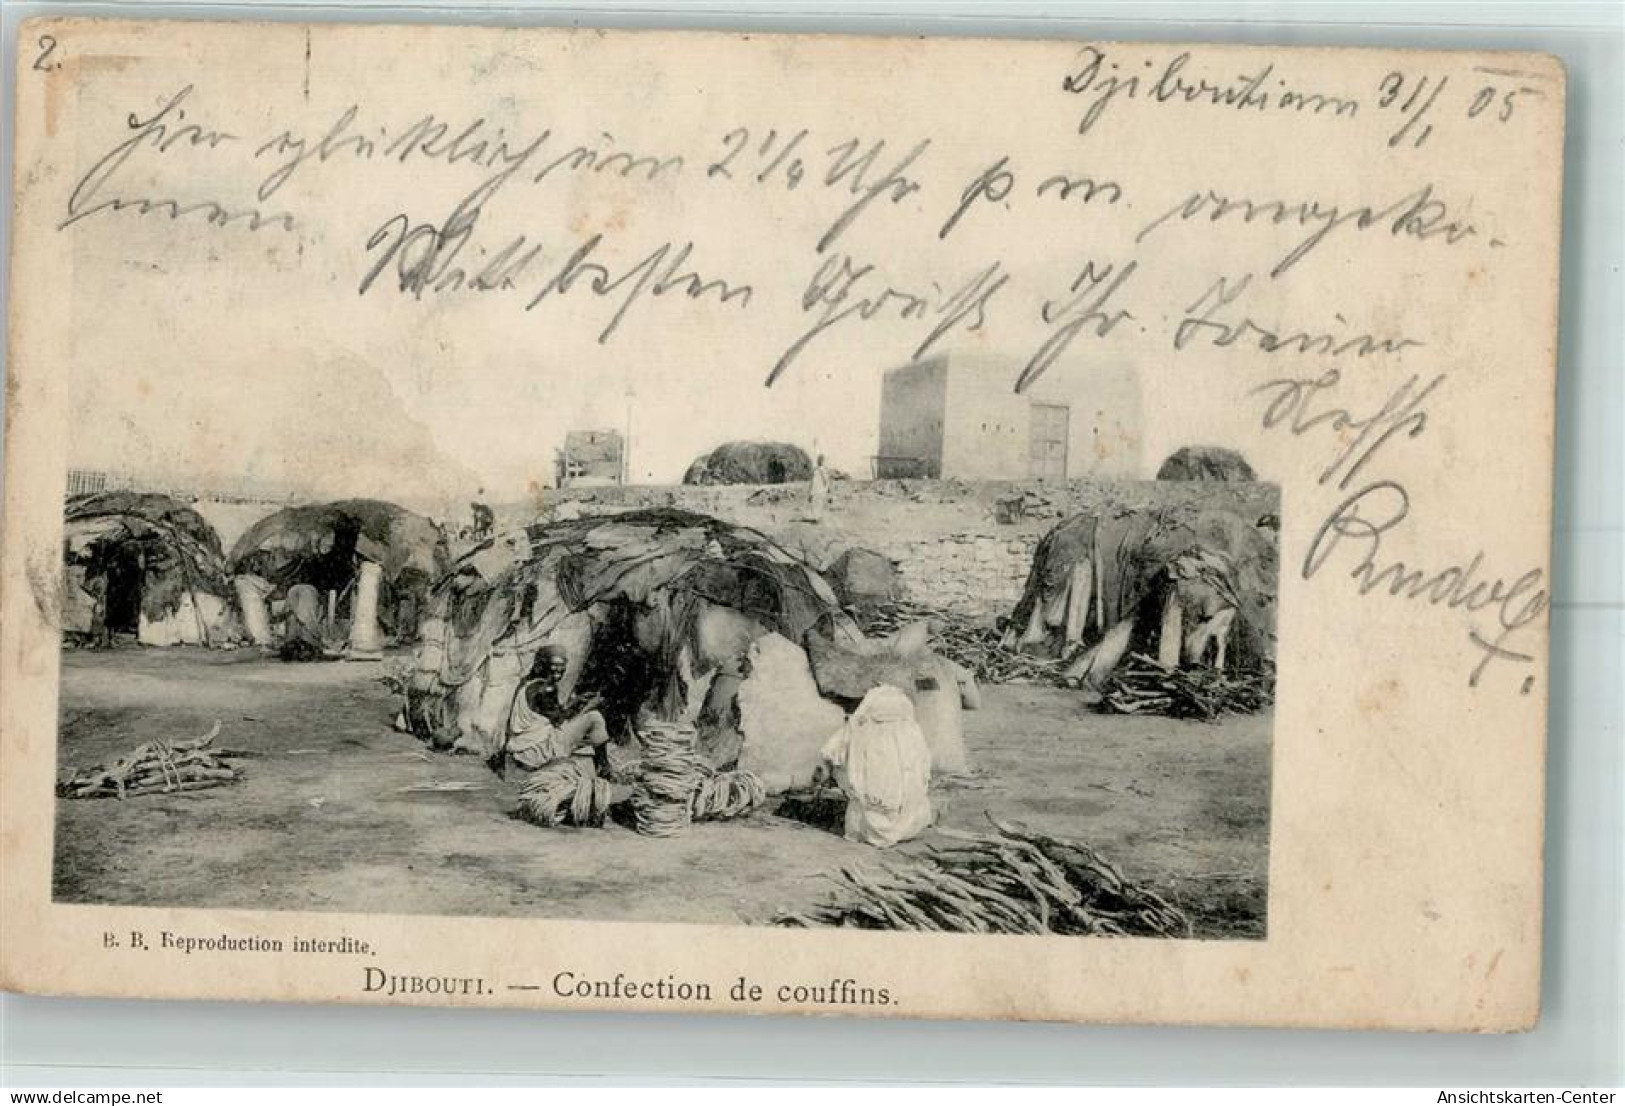 2.
Djibouti am 31/1 05
Hier glücklich um 2 1/4 Uhr p. m. angeko-
men. Mitt besten Gruß Ihr treuer
Neffe
Rudolf
B. B. Reproduction interdite.
DJIBOUTI. — Confection de couffins.
Ansichtskarten-Center